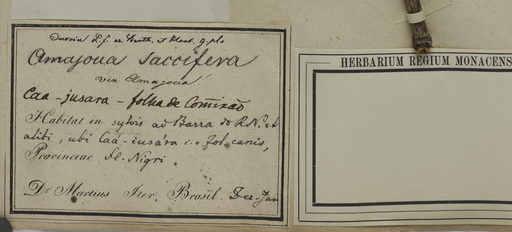 Duroia L.f. ex Benth. et Hook. g. pl.
Amajoua saccifera
via Amajoua
Caa-jusara - folha de Comixaõ
Habitat in sylvis ad Barra do R.N. et
alibi, ubi Caá-iusára i.e. fol. canis,
Provinciae fl. Nigri.
Dr. Martius Iter Brasil. Dec-Jan
HERBARIUM REGIUM MONACENS